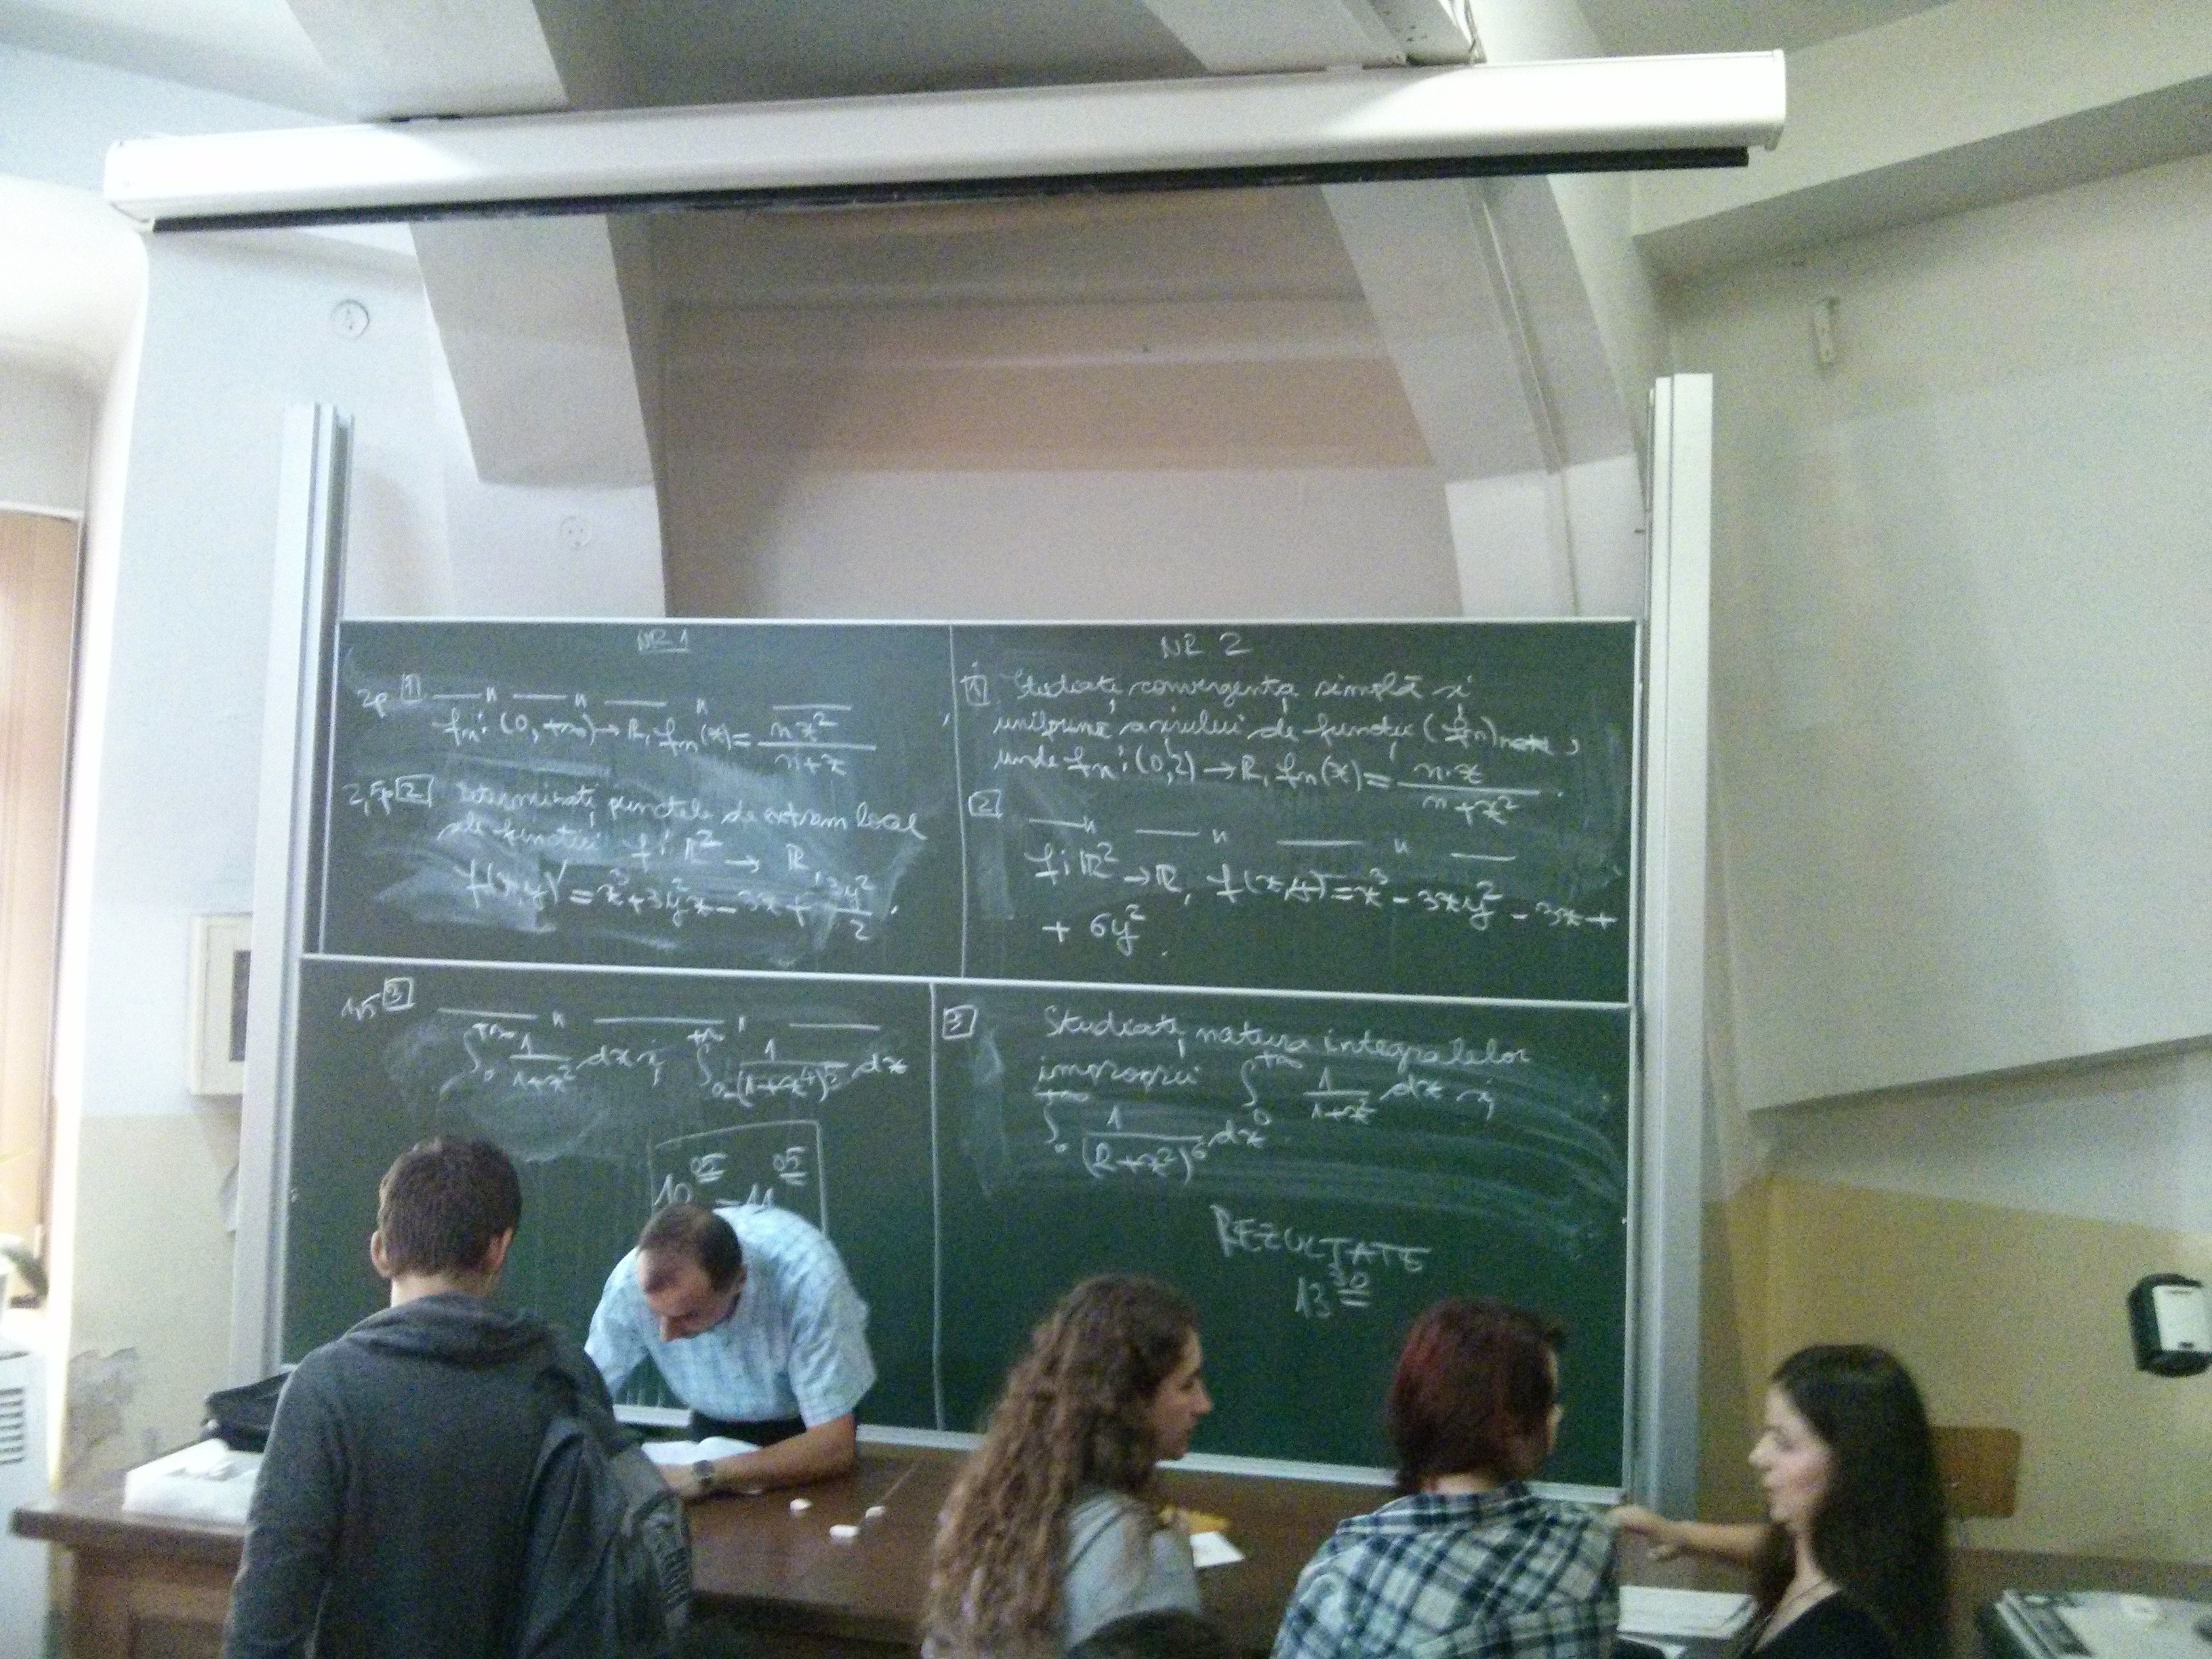 NR 1
2p 1 — " — " — " —
fn: (0, +∞) → R, fn(x) = nx² / (n+x)
2,5p 2 Determinați punctele de extrem local
ale funcției f: R² → R,
f(x,y) = x³+3y²x-3x+ 3y²/2.
1,5 3 — " — " —
∫₀^{+∞} 1/(1+x²) dx și ∫₀^{+∞} 1/(1+x⁴)² dx
10⁰⁵ - 11⁰⁵
NR 2
1 Studiați convergența simplă și
uniformă a șirului de funcții (fn)
unde fn: (0,2) → R, fn(x) = n·x / (n+x²).
2 — " — " — " —
f: R² → R, f(x,y) = x³ - 3xy² - 3x +
+ 6y².
3 Studiați natura integralelor
improprii ∫₀^{+∞} 1/(1+x²) dx și
∫₀^{+∞} dx
REZULTATE
13³⁰